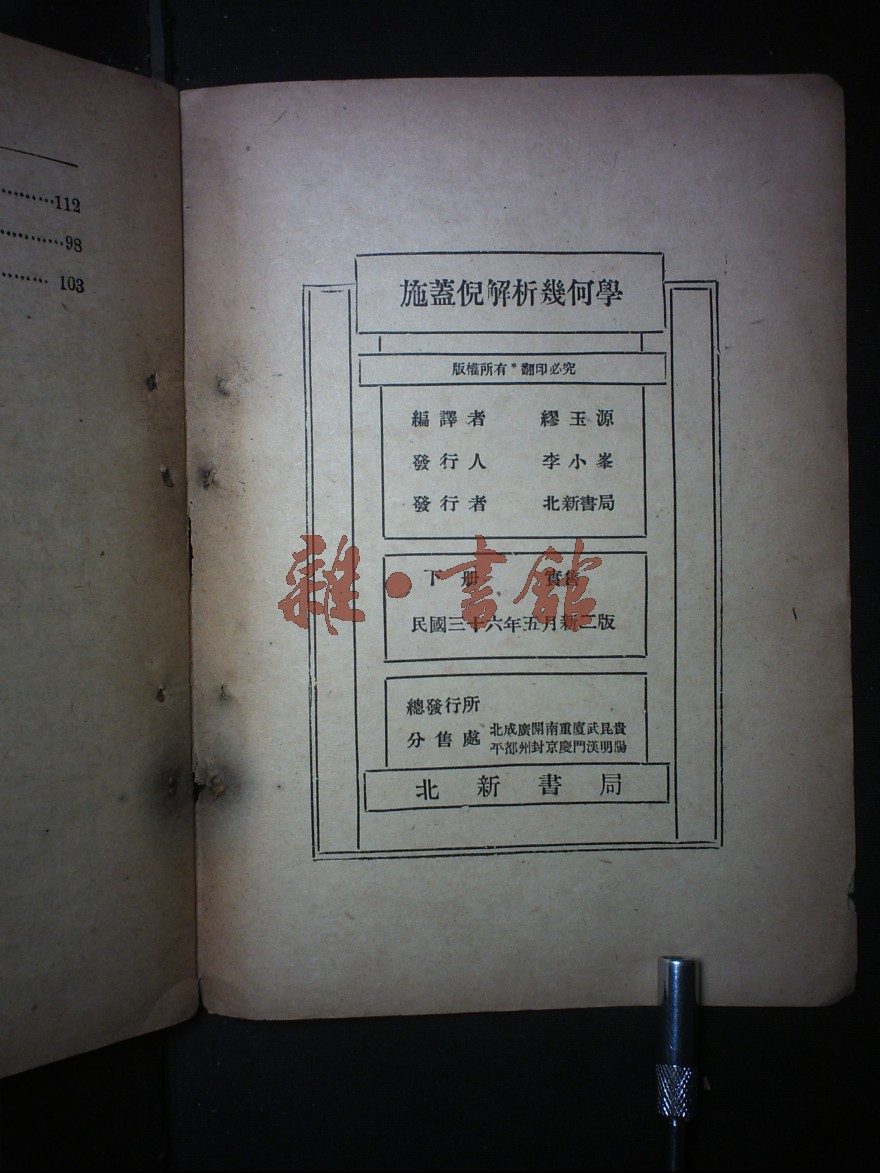 112
98
103
施蓋倪解析幾何學
版權所有*翻印必究
編譯者 繆玉源
發行人 李小峯
發行者 北新書局
下册 實售
雜·書館
民國三十六年五月新二版
總發行所
分售處 北成廣開南重廈武昆貴
平都州封京慶門漢明陽
北新書局